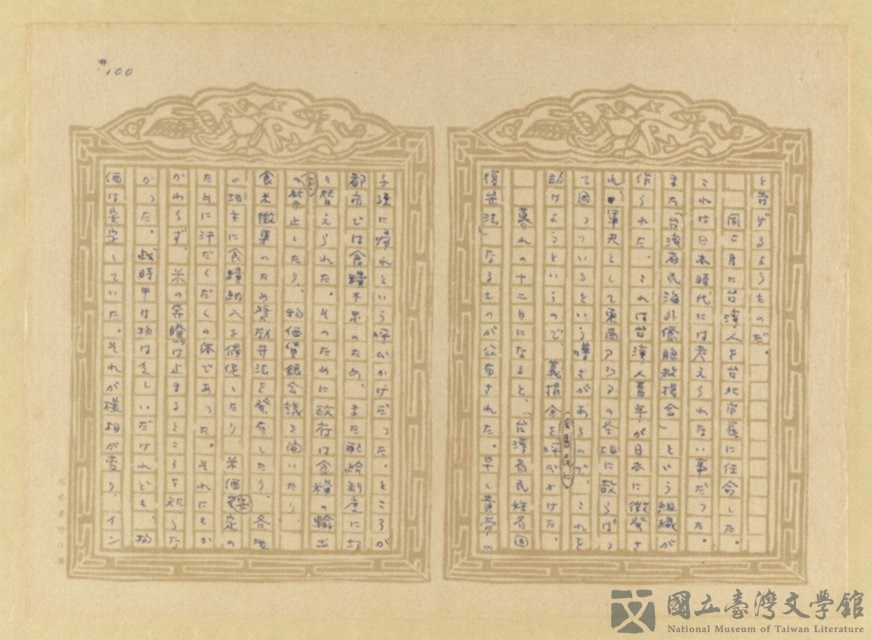 #100
と苦げるようものだ。
同じ月に台湾人を台北市長に任命した。
これは日本時代には考えられない事だった。
また「台湾省民海外僑胞救援会」という組織が
作られた。これは台湾人青年が日本に徴発さ
れ、軍夫として東南アジアの各地に散らばっ
て困っているという噂があるので、これを
助けようというので、義捐金を呼びかけた。
暮れの十二月になると、「台湾省民姓名回
復弁法」なるものが公布された。早く貴方の
子孫に帰れという呼びかけだった。ところが
都市では食糧不足のため、また配給制度に切
り替えられた。そのために政府は食糧の輸出
の禁止したり、物価懇談会議を開いたり、
食米徴集のため奨励弁法を発布したり、各地
の地主に食糧納入を催促したり、米価安定の
ために汗だくだくの体であった。それにもか
かわらず、米の昇騰は止まるところを知らな
かった。戦時中は物は乏しいだけれども、物
価は安定していた。それが様相が変り、イン
國立臺灣文學館
National Museum of Taiwan Literature